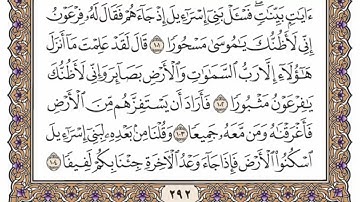 ءَايَٰتٍۭ بَيِّنَٰتٍ ۖ فَسْـَٔلْ بَنِىٓ إِسْرَٰٓءِيلَ إِذْ جَآءَهُمْ فَقَالَ لَهُۥ فِرْعَوْنُ
إِنِّى لَأَظُنُّكَ يَٰمُوسَىٰ مَسْحُورًا ١٠١ قَالَ لَقَدْ عَلِمْتَ مَآ أَنزَلَ
هَٰٓؤُلَآءِ إِلَّا رَبُّ ٱلسَّمَٰوَٰتِ وَٱلْأَرْضِ بَصَآئِرَ وَإِنِّى لَأَظُنُّكَ
يَٰفِرْعَوْنُ مَثْبُورًا ١٠٢ فَأَرَادَ أَن يَسْتَفِزَّهُم مِّنَ ٱلْأَرْضِ
فَأَغْرَقْنَٰهُ وَمَن مَّعَهُۥ جَمِيعًا ١٠٣ وَقُلْنَا مِنۢ بَعْدِهِۦ لِبَنِىٓ إِسْرَٰٓءِيلَ
ٱسْكُنُوا۟ ٱلْأَرْضَ فَإِذَا جَآءَ وَعْدُ ٱلْءَاخِرَةِ جِئْنَا بِكُمْ لَفِيفًا ١٠٤
٢٩٢